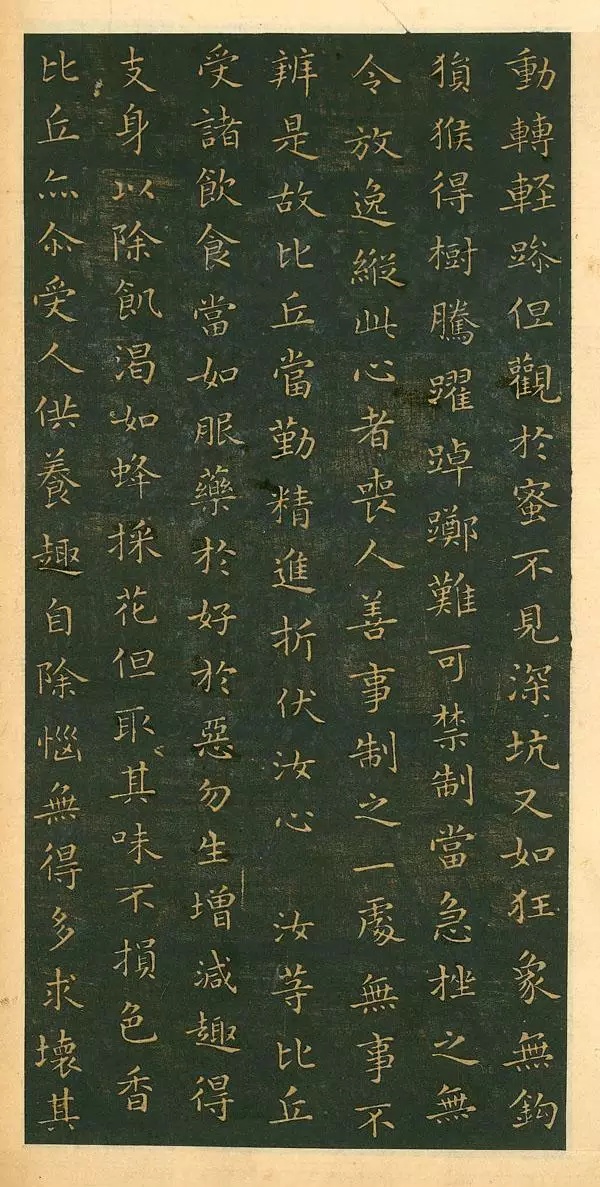 動轉軽躁但觀於蜜不見深坑又如狂象無鈎
猨猴得樹騰躍踔躑難可禁制當急挫之無
令放逸縱此心者喪人善事制之一處無事不
辨是故比丘當勤精進折伏汝心　汝等比丘
受諸飲食當如服藥於好於惡勿生增減趣得
支身以除飢渴如蜂採花但取其味不損色香
比丘亦尒受人供養趣自除惱無得多求壞其